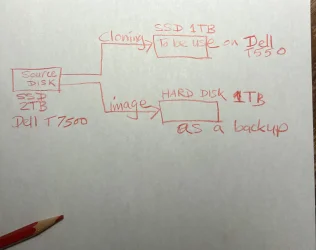 SSD 1TB
Cloning
To be use on Dell
T550
Source
DISK
SSD
2TB
Dell T7500
image
HARD DISK 1TB
as a backup